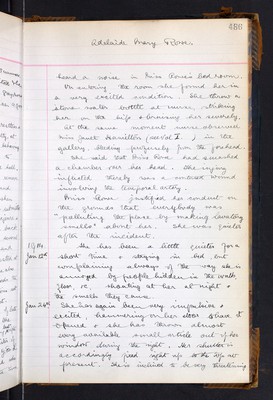 486
Adelaide Mary
heard a noise in Miss Bedroom.
On entering the room she found her in
a very excited condition. She threw a
stone water bottle at nurse, striking
her on the hip & bruising her severely.
At the same moment nurse observed
Miss Janet in the
gallery bleeding profusely from the forehead.
She said that Miss had smashed
a chamber over her head. The injury
inflicted thereby was a contused wound
involving the temporal artery.
Miss justified her conduct on
the ground that everybody was
"polluting the place by making lavatory
smells" about her. She was quieter
after the incident.
1914.
Jan 12th She has been a little quieter for a
short time & staying in bed, but
complaining always of the way she is
annoyed by people hidden in the walls
floor, &c, shouting at her at night &
the smells they cause.
Jan 26th She has again been very impulsive &
excited, hammering on her door to have it
opened & she has thrown almost
every available small article out of her
window during the night. Her shutter is
accordingly fixed right up to the top at
present. She is inclined to be very threatening